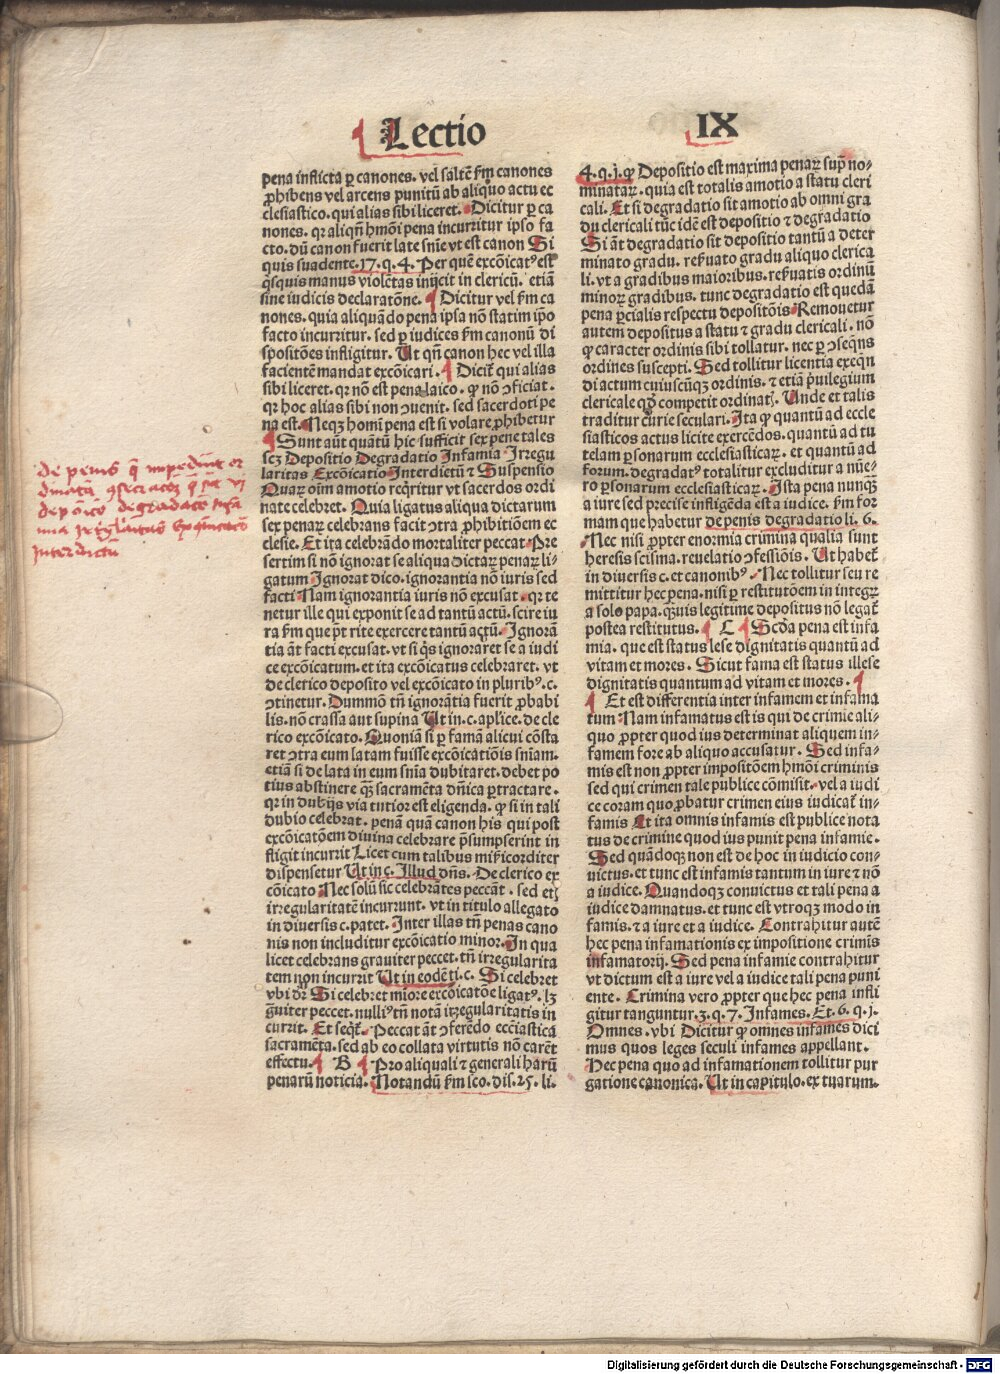 Lectio IX
pena inflicta ꝑ canones. vel saltē ẜm canones
ꝓhibens vel arcens punitū ab aliquo actu ec
clesiastico. qui alias sibi liceret. Dicitur ꝑ ca
nones. qꝛ aliqñ hmōi pena incurritur ipso fa
cto. dū canon fuerit late snīe vt est canon Si
quis suadente. 17. q. 4. Per quē excōicatꝰ est
qͥsquis manus violētas inijcit in clericū. etiā
sine iudicis declaratōne. Dicitur vel ẜm ca
nones. quia aliquādo pena ipsa nō statim ip̄o
facto incurritur. sed ꝑ iudices ẜm canonū di
spositōes infligitur. Ut qñ canon hec vel illa
facientē mandat excōicari. Dicit̄ qui alias
sibi liceret. qꝛ nō est pena laico. ꝙ nō ꝯficiat.
qꝛ hoc alias sibi non ꝯuenit. sed sacerdoti pe
na est. Neqꝫ homī pena est si volare ꝓhibetur
Sunt aūt quātū hic sufficit sex pene tales
scꝫ Depositio Degradatio Infamia Irregu
laritas Excōicatio Interdictū ⁊ Suspensio
Quaꝝ oīm amotio reqͥritur vt sacerdos ordi
nate celebret. Quia ligatus aliqua dictarum
sex penaꝝ celebrans facit ꝯtra ꝓhibitiōem ec
clesie. Et ita celebrādo mortaliter peccat. Pre
sertim si nō ignorat se aliqua dictaꝝ penaꝝ li-
gatum Ignorat dico. ignorantia nō iuris sed
facti Nam ignorantia iuris nō excusat. qꝛ te
netur ille qui exponit se ad tantū actū. scire iu
ra ẜm que pōt rite exercere tantū actū. Ignorā
tia āt facti excusat. vt si qͥs ignoraret se a iudi
ce excōicatum. et ita excōicatus celebraret. vt
de clerico deposito vel excōicato in pluribꝰ. c.
ꝯtinetur. Dummō tñ ignorātia fuerit ꝓbabi
lis. nō crassa aut supina Ut in. c. apl'ice. de cle
rico excōicato. Quoniā si ꝑ famā alicui cōsta
ret ꝯtra eum latam fuisse excōicatiōis snīam.
etiā si de lata in eum snīa dubitaret. debet po
tius abstinere qꝫ sacramēta dn̄ica ꝑtractare.
qꝛ in dubijs via tutior est eligenda. ꝙ si in tali
dubio celebrat. penā quā canon his qui post
excōicatōem diuina celebrare p̄sumpserint in
fligit incurrit Licet cum talibus mīcorditer
dispensetur Ut in c. Illud dn̄s. De clerico ex
cōicato Nec solū sic celebrātes peccāt. sed etī
irregularitatē incurrunt. vt in titulo allegato
in diuersis c. patet. Inter illas tñ penas cano
nis non includitur excōicatio minor. In qua
licet celebrans grauiter peccet. tñ irregularita
tem non incurrit Ut in eodē ti. c. Si celebret
vbi dr̄ Si celebret miore excōicatōe ligatꝰ. lꝫ
gͣuiter peccet. nulliꝰ tñ notā irregularitatis in
currit. Et seqͥt̄. Peccat āt ꝯferēdo ecciastica
sacramēta. sed ab eo collata virtutis nō carēt
effectu. B Pro aliquali ⁊ generali harū
penarū noticia. Notandū ẜm sco. dis. 25. li.
4. q. i. ꝙ Depositio est maxima penaꝝ sup̄ no-
minataꝝ. quia est totalis amotio a statu cleri
cali. Et si degradatio sit amotio ab omni gra
du clericali tūc idē est depositio ⁊ degradatio
Si āt degradatio sit depositio tantū a deter
minato gradu. reẜuato gradu aliquo clerica
li. vt a gradibus maioribus. reẜuatis ordinū
minoꝝ gradibus. tunc degradatio est quedā
pena ꝑcialis respectu depositōis Remouetur
autem depositus a statu ⁊ gradu clericali. nō
ꝙ caracter ordinis sibi tollatur. nec ꝑ ꝯseqn̄s
ordines suscepti. Sed tollitur licentia exeqn̄
di actum cuiuscūqꝫ ordinis. ⁊ etiā p̄uilegium
clericale qḋ competit ordinatꝭ. Unde et talis
traditur curie seculari. Ita ꝙ quantū ad eccle
siasticos actus licite exercēdos. quantū ad tu
telam ꝑsonarum ecclesiasticaꝝ. et quantū ad
forum. degradatꝰ totalitur excluditur a nūe-
ro ꝑsonarum ecclesiasticaꝝ. Ista pena nunqꝫ
a iure sed precise infligēda est a iudice. ẜm for
mam que habetur de penis degradatio li. 6.
Nec nisi ꝓpter enormia crimina qualia sunt
heresis scisma. reuelatio ꝯfessiōis. Ut habet̄
in diuersis c. et canonibꝰ. Nec tollitur seu re
mittitur hec pena. nisi ꝑ restitutōem in integꝝ
a solo papa. qͣuis legitime depositus nō legat̄
postea restitutus. C Scḋa pena est infa
mia. que est status lese dignitatis quantū ad
vitam et mores. Sicut fama est status illese
dignitatis quantum ad vitam et mores.
Et est differentia inter infamem et infama
tum Nam infamatus est is qui de crimīe ali-
quo ꝓpter quod ius determinat aliquem in-
famem fore ab aliquo accusatur. Sed infa-
mis est non ꝓpter impositōem hmōi criminis
sed qui crimen tale publice cōmisit. vel a iudi
ce coram quo ꝓbatur crimen eius iudicat̄ in-
famis Et ita omnis infamis est publice nota
tus de crimine quod ius punit pena infamie.
Sed quādoqꝫ non est de hoc in iudicio con-
uictus. et tunc est infamis tantum in iure ⁊ nō
a iudice. Quandoqꝫ conuictus et tali pena a
iudice damnatus. et tunc est vtroqꝫ modo in
famis. ⁊ a iure et a iudice. Contrahitur autē
hec pena infamationis ex impositione crimīs
infamatorij. Sed pena infamie contrahitur
vt dictum est a iure vel a iudice tali pena puni
ente. Crimina vero ꝓpter que hec pena infli
gitur tanguntur. 3. q. 7. Infames. Et. 6. q. i.
Omnes. vbi Dicitur ꝙ omnes infames dici
mus quos leges seculi infames appellant.
Hec pena quo ad infamationem tollitur pur
gatione canonica. Ut in capitulo. ex tuarum.
de penis q̄ impediūt or
dinatū
depōito degradacō infa
mia irreg'laritas Excōicacō
Interdictū
Digitalisierung gefördert durch die Deutsche Forschungsgemeinschaft - DFG